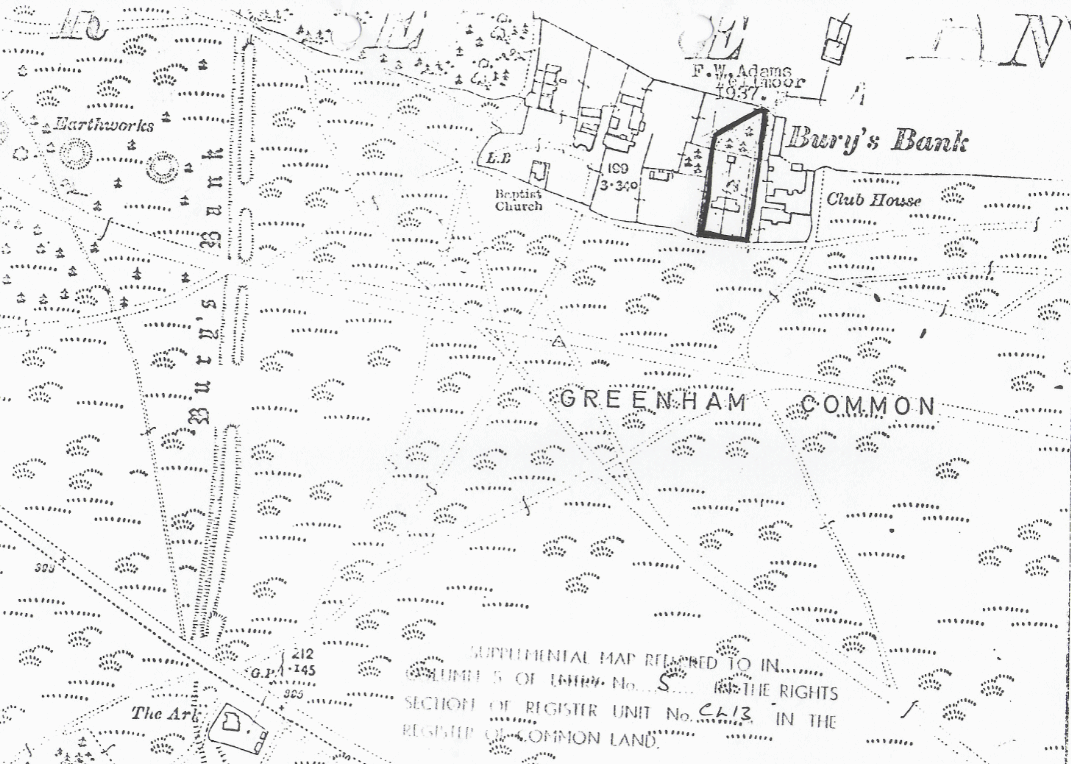 E
E
AN
F.W.Adams
1937.
Earthworks
Bury's Bank
L.B
Baptist
Church
199
3·340
Club House
Bury's Bank
GREENHAM COMMON
393
SUPPLEMENTAL MAP REFERRED TO IN
COLUMN 5 OF ENTRY No. 5 IN THE RIGHTS
SECTION OF REGISTER UNIT No. CL13 IN THE
REGISTER OF COMMON LAND.
212
·145
G.P.
395
The Ark